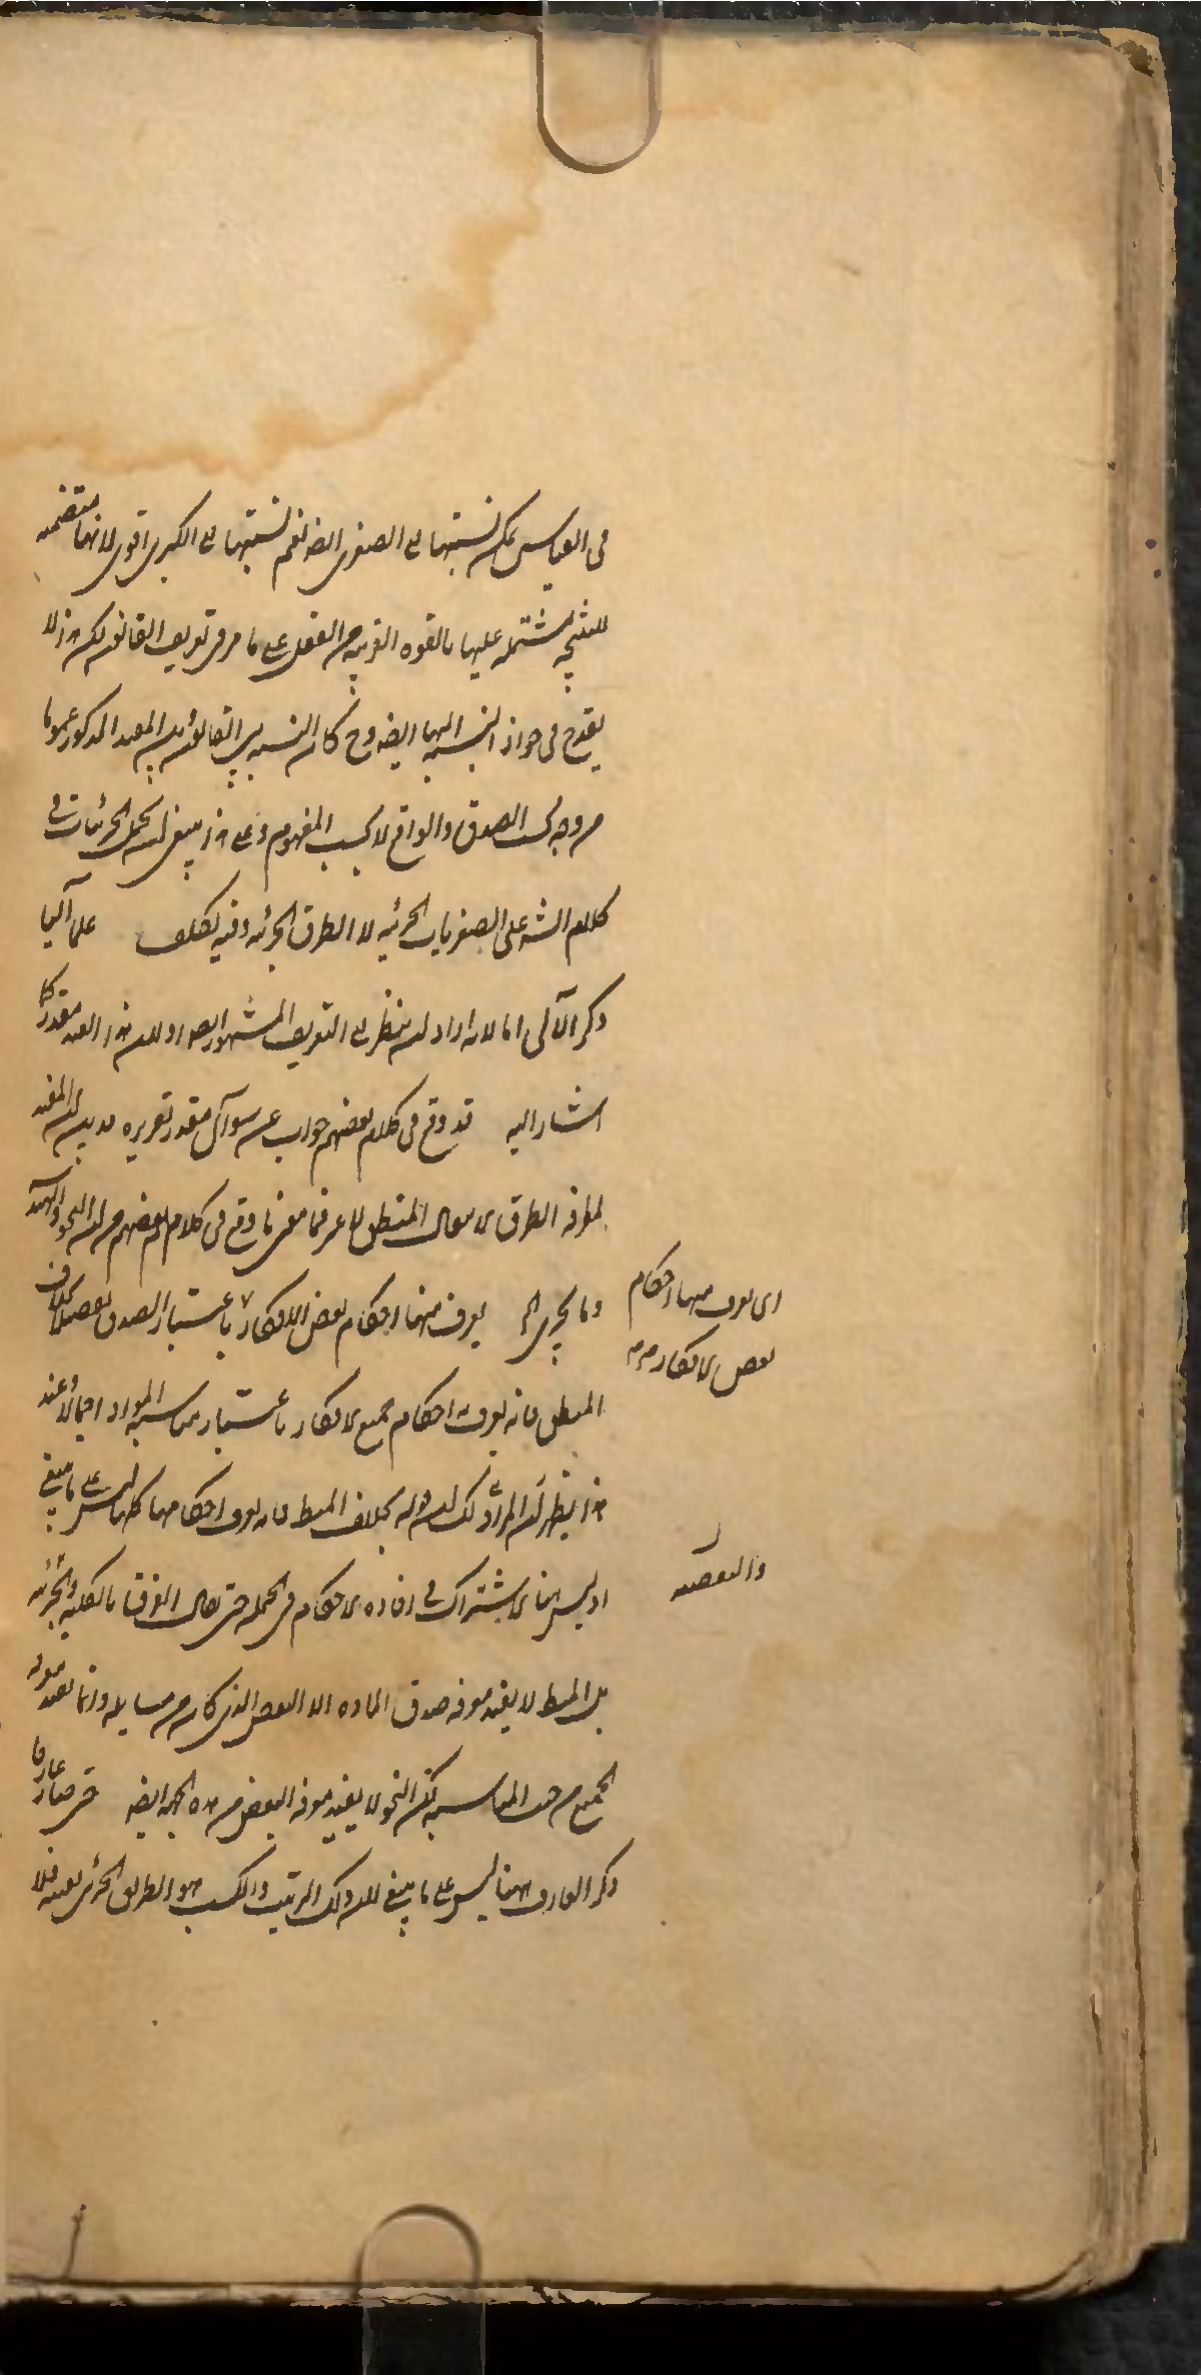 في القياس يمكن نسبتها الى الصغرى ايضا نعم نسبتها الى الكبرى اقوى لانها متضمنة
للنتيجة مشتملة عليها بالقوة القريبة من الفعل على ما مر في تعريف القانون لكن هذا لا
يقدح في جواز النسبة اليها ايضا وح كان النسبة بين القانون وبين المفيد المذكور عموما
من وجه بحسب الصدق والواقع لا بحسب المفهوم وعلى هذا ينبغي ان يحمل الجزئيات في
كلام الش على الصغريات الجزئية لا الطرق الجزئية وفيه تكلف علما آليا
ذكر الآلي اما لانه اراد ان ينظر الى التعريف المشهور ايضا او لان هذا القيد مقدر كما
اشار اليه قد وقع في كلام بعضهم جواب عن سوآل مقدر تقريره بين ان المفيد
لمعرفة الطرق لا يقال المنطق لا غير فما معنى ما وقع في كلام بعضهم من ان النحو والهندسة
وما يجرى يعرف منهما احكام بعض الافكار باعتبار الصدق تفصيلا بخلاف
اى يعرف منها احكام
بعض الافكار
المنطق فانه يعرف احكام جميع الافكار باعتبار مناسبة المواد اجمالا وعند
هذا يظهر ان المراد ذلك ان قوله بخلاف المنطق فانه يعرف احكامها كلها ليس على ما ينبغي
اذ ليس هنا الاشتراك في افادة الاحكام في الجملة حتى يقال الفرق بالكلية والجزئية
بل المنطق لا يفيد معرفة صدق المادة الا البعض الذي كان من مسايله وانما يفيد معرفة
الجميع من حيث المناسبة لكن النحو لا يفيد معرفة البعض من هذه الجهة ايضا حتى صار عارفا
ذكر العارف هنا ليس على ما ينبغي لان ذلك الترتيب والكسب هو الطريق الجزئي بعينه فلا